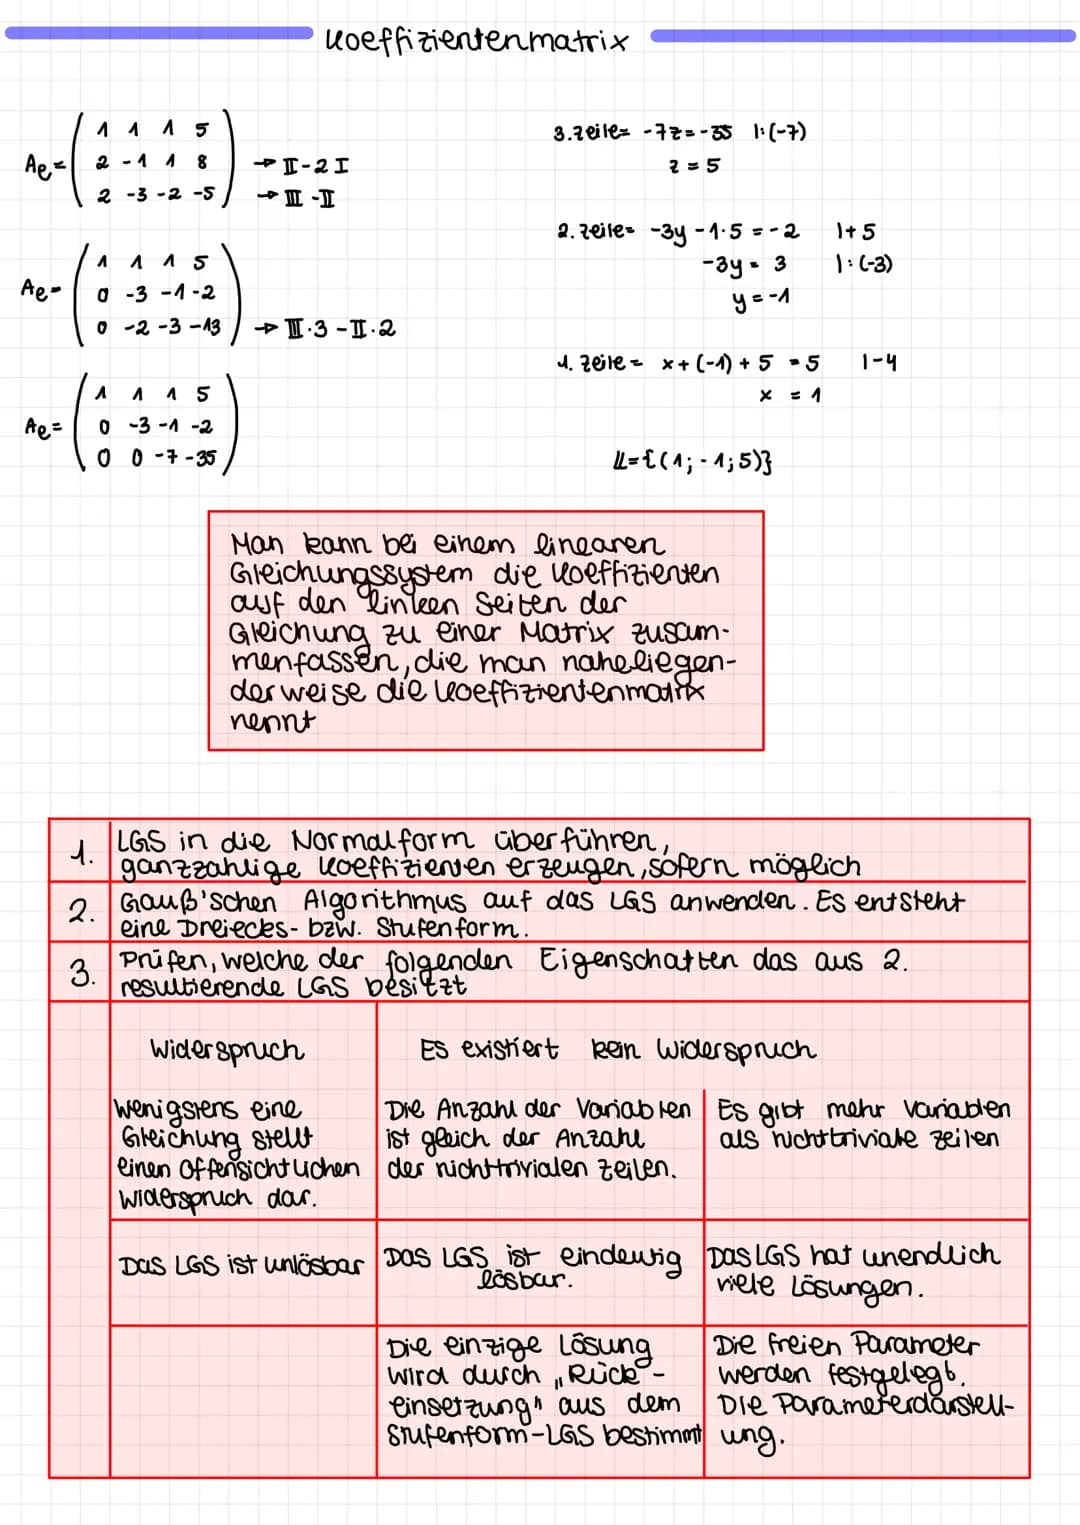 Koeffizientenmatrix
1 1 1 5
Ae= 2 -1 1 8 → II-2I
2 -3 -2 -5 → III-II
1 1 1 5
Ae= 0 -3 -1 -2
0 -2 -3 -13 → III·3-II·2
1 1 1 5
Ae= 0 -3 -1 -2
0 0 -7 -35
3.Zeile= -7z=-35 |:(-7)
z = 5
2.Zeile= -3y-1·5=-2 |+5
-3y = 3 |:(-3)
y=-1
1. Zeile= x+(-1)+5 =5 |-4
x = 1
𝕃={(1;-1;5)}
Man kann bei einem linearen
Gleichungssystem die Koeffizienten
auf den linken Seiten der
Gleichung zu einer Matrix zusam-
menfassen, die man naheliegen-
derweise die Koeffizientenmatrix
nennt
1. LGS in die Normalform überführen,
ganzzahlige Koeffizienten erzeugen, sofern möglich
2. Gauß'schen Algorithmus auf das LGS anwenden. Es entsteht
eine Dreiecks- bzw. Stufenform.
3. Prüfen, welche der folgenden Eigenschaften das aus 2.
resultierende LGS besitzt
Widerspruch
Es existiert kein Widerspruch
Wenigstens eine
Gleichung stellt
einen offensichtlichen
Widerspruch dar.
Die Anzahl der Variablen
ist gleich der Anzahl
der nichttrivialen Zeilen.
Es gibt mehr Variablen
als nichttriviale Zeilen
Das LGS ist unlösbar
Das LGS ist eindeutig
lösbar.
Das LGS hat unendlich
viele Lösungen.
Die einzige Lösung
wird durch „Rück-
einsetzung" aus dem
Stufenform-LGS bestimmt
Die freien Parameter
werden festgelegt.
Die Parameterdarstell-
ung.